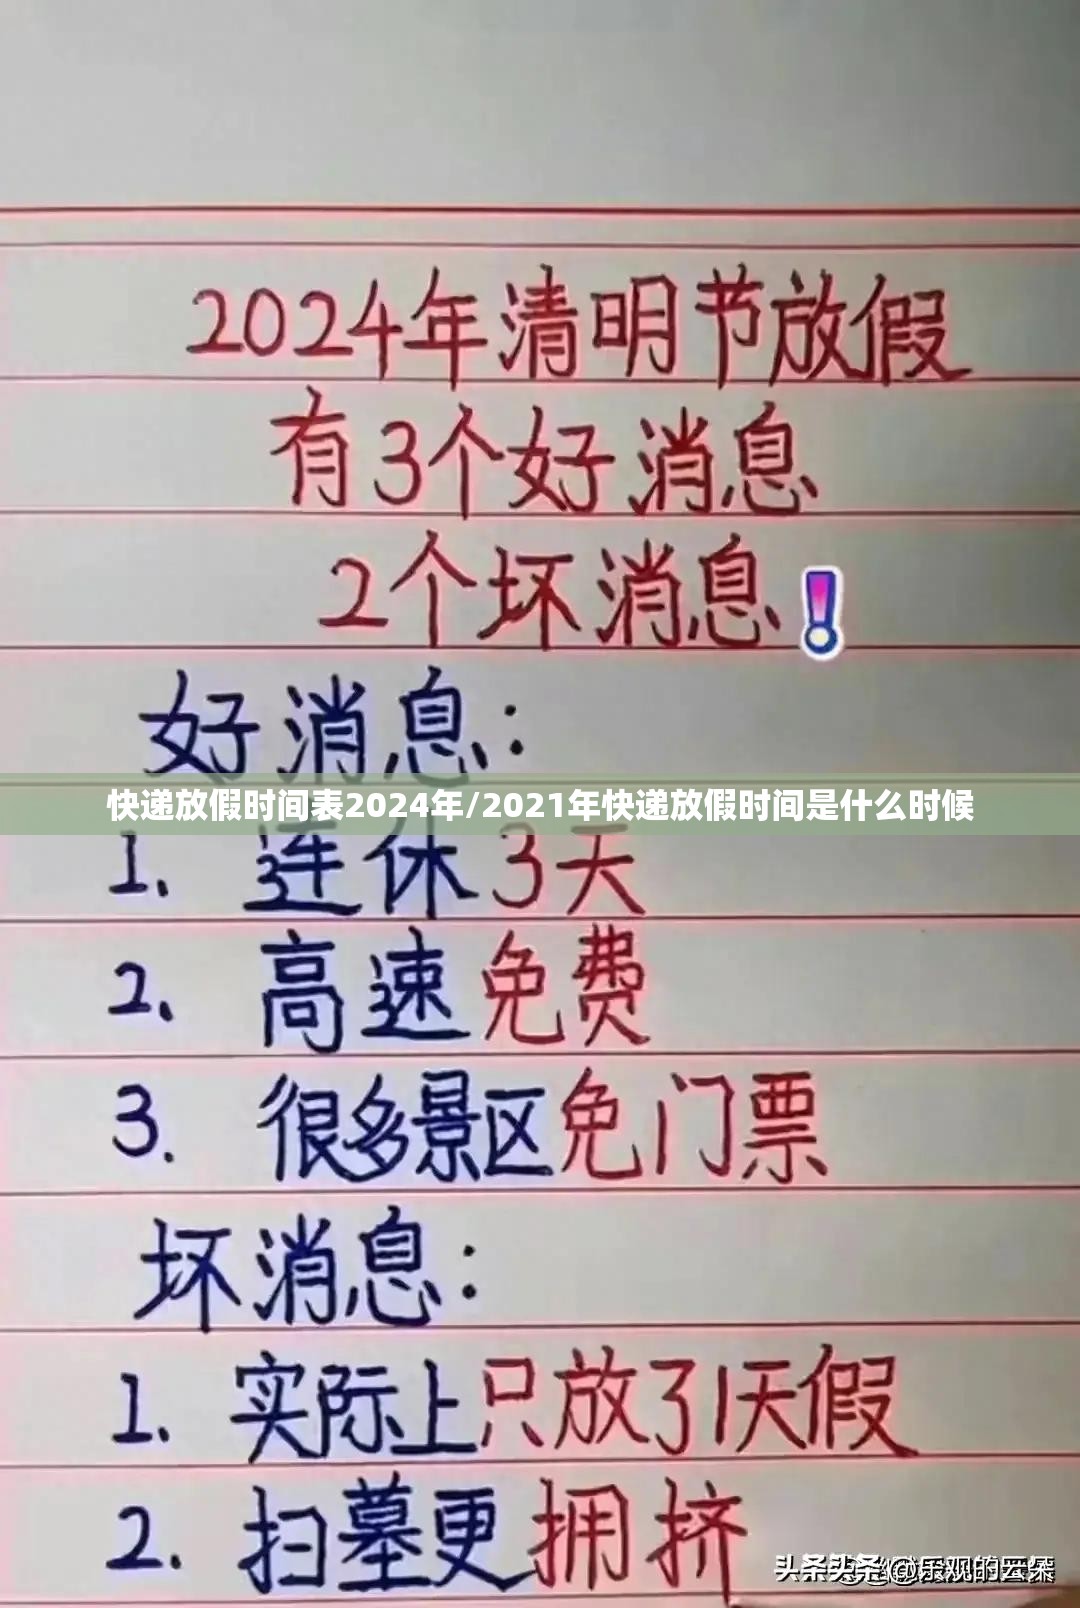 2024年清明节放假
有3个好消息
2个坏消息
好消息:
快递放假时间表2024年/2021年快递放假时间是什么时候
1、连休3天
2、高速免费
3. 很多景区免门票
坏消息:
1、实际上只放了1天假
2、扫墓更拥挤
头条头条 @乐观的云朵